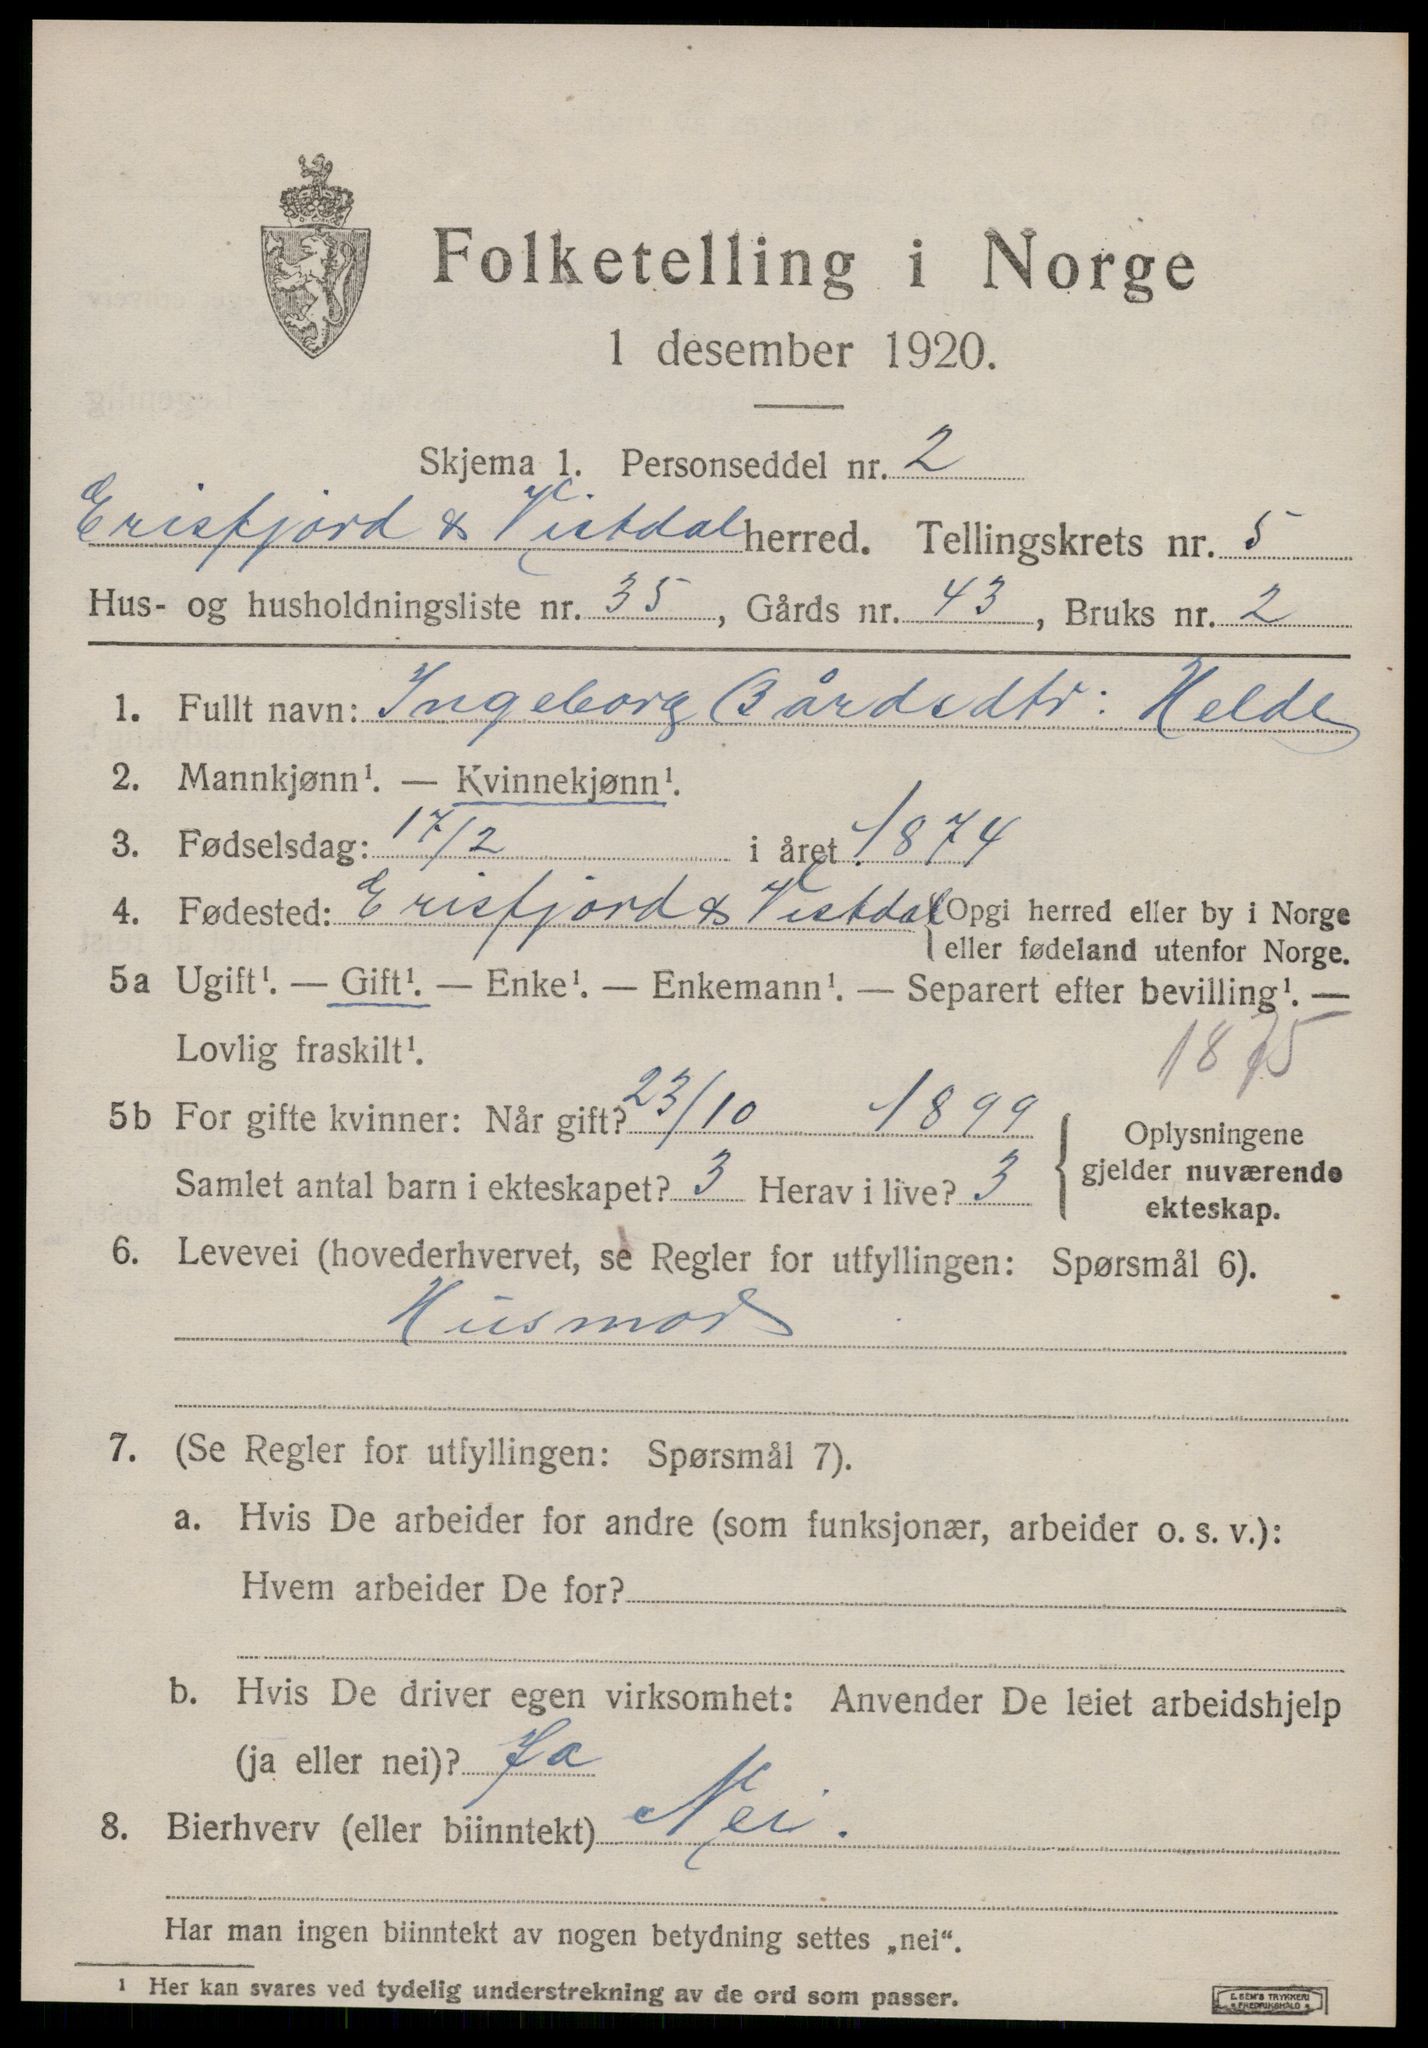 Folketelling i Norge
1 desember 1920.
Skjema 1. Personseddel nr. 2
Erisfjord & Vistdal herred. Tellingskrets nr. 5
Hus- og husholdningsliste nr. 35, Gårds nr. 43, Bruks nr. 2
1. Fullt navn: Ingeborg Bårdsdtr: Helde
2. Mannkjønn¹. — Kvinnekjønn¹.
3. Fødselsdag: 17/2 i året 1874
4. Fødested: Erisfjord & Vistdal {Opgi herred eller by i Norge
eller fødeland utenfor Norge.
5a Ugift¹. — Gift¹. — Enke¹. — Enkemann¹. — Separert efter bevilling¹. —
Lovlig fraskilt¹.
1875
5b For gifte kvinner: Når gift? 23/10 1899
Samlet antal barn i ekteskapet? 3 Herav i live? 3
{ Oplysningene
gjelder nuværende
ekteskap.
6. Levevei (hovederhvervet, se Regler for utfyllingen: Spørsmål 6).
Husmor
7. (Se Regler for utfyllingen: Spørsmål 7).
a. Hvis De arbeider for andre (som funksjonær, arbeider o. s. v.):
Hvem arbeider De for?
b. Hvis De driver egen virksomhet: Anvender De leiet arbeidshjelp
(ja eller nei)? Ja
8. Bierhverv (eller biinntekt) Nei.
Har man ingen biinntekt av nogen betydning settes „nei“.
¹ Her kan svares ved tydelig understrekning av de ord som passer.
E. SEM'S TRYKKERI
FREDRIKSHALD